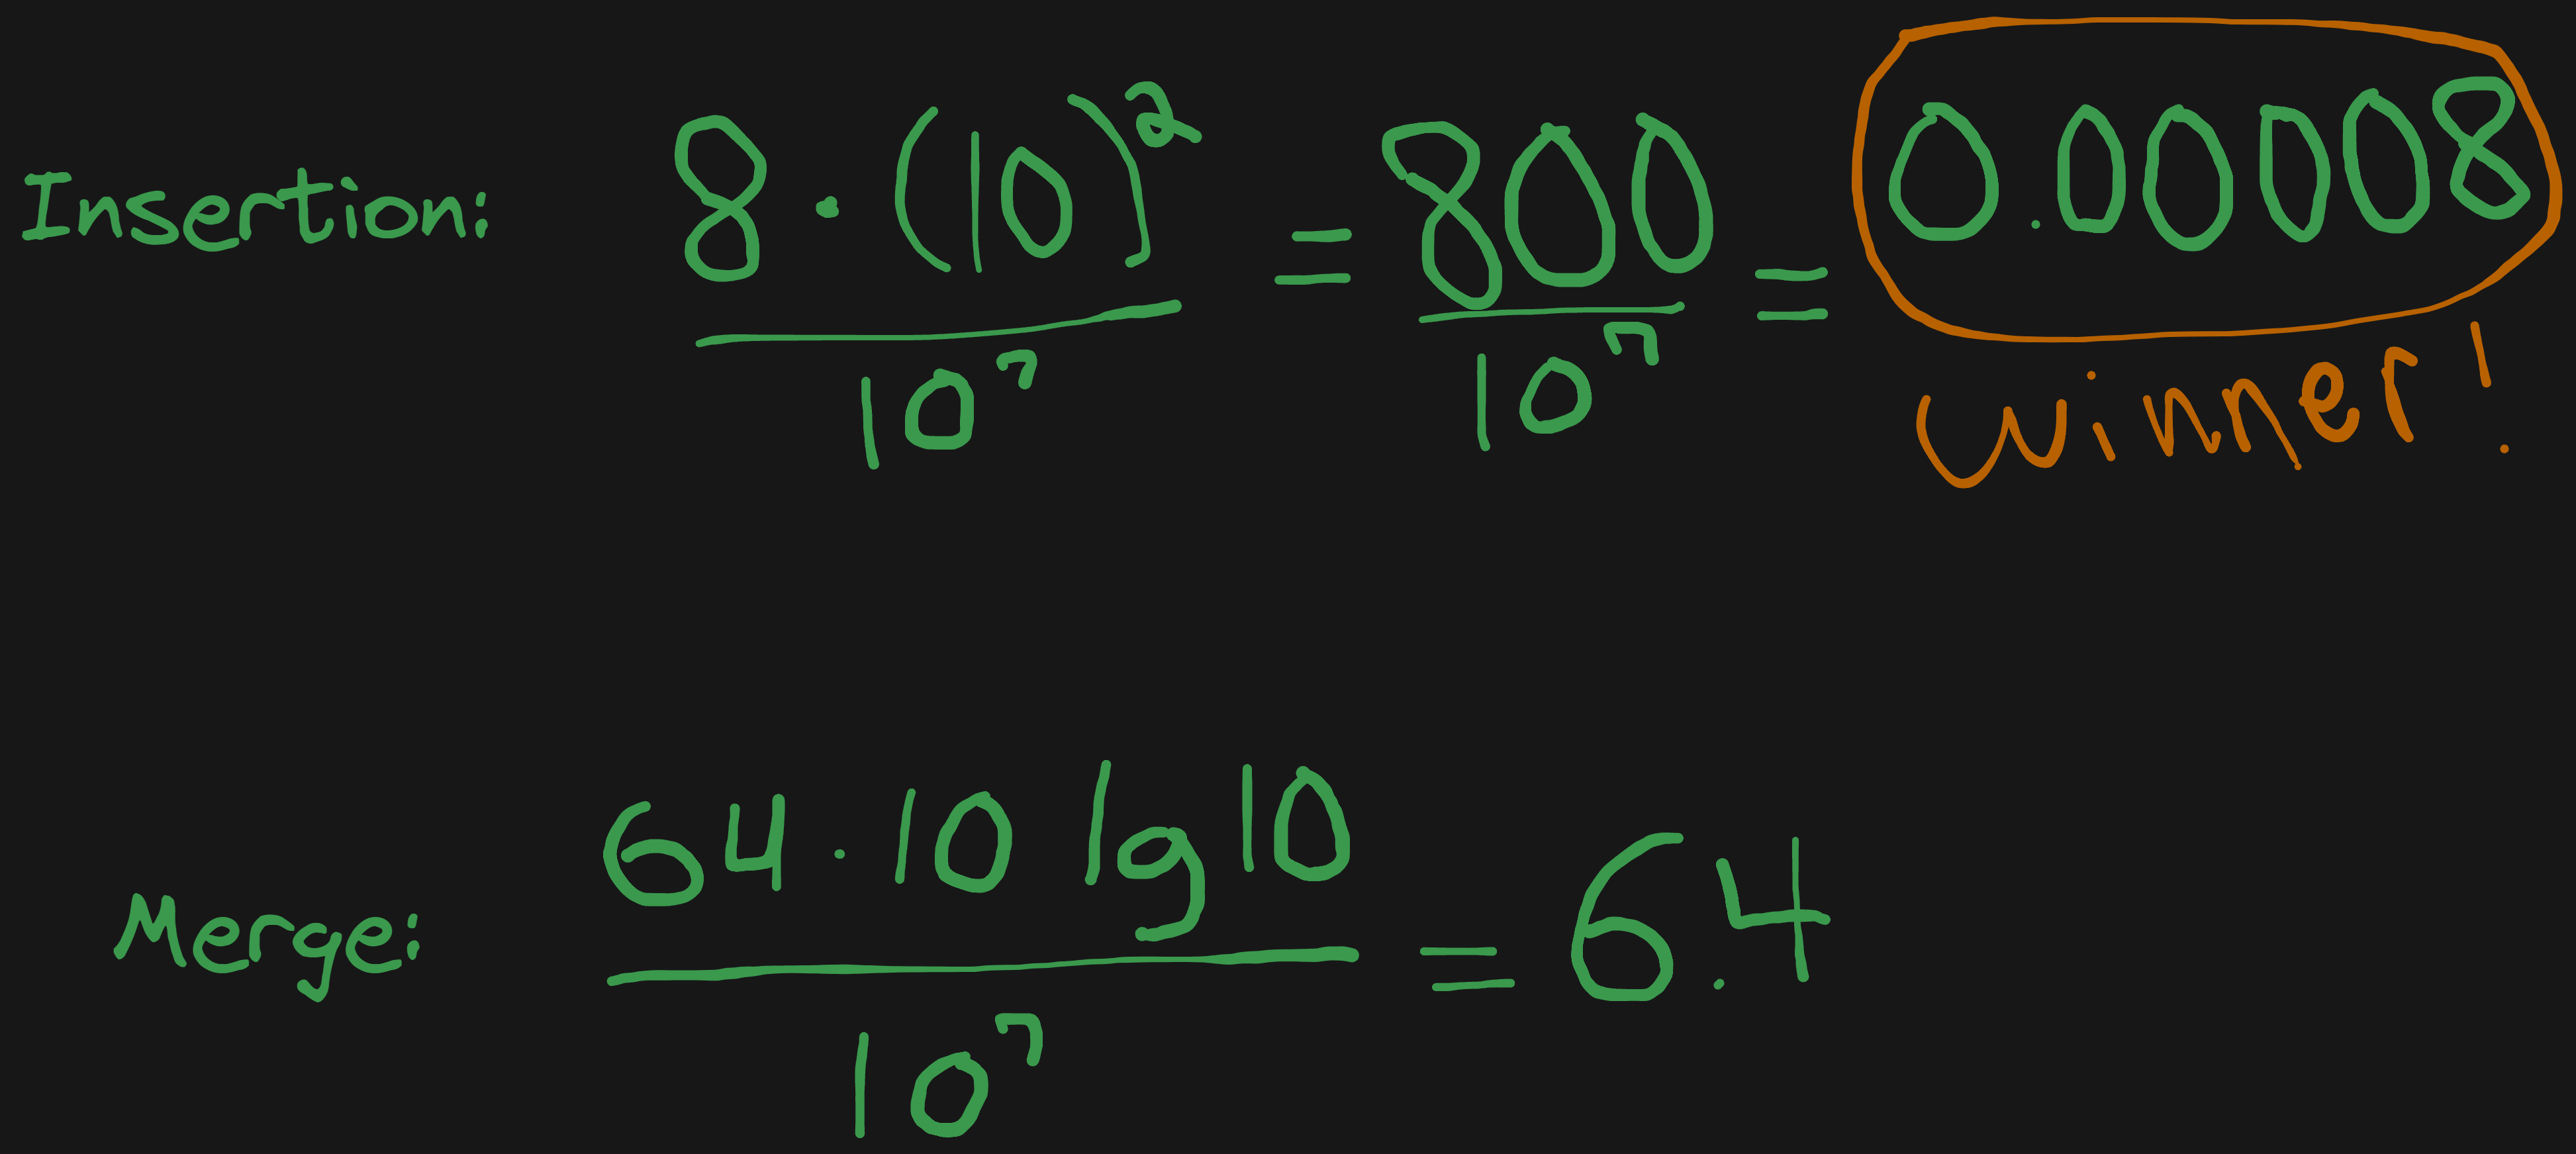 Insertion: 8 · (10)² / 10⁷ = 800 / 10⁷ = 0.00008
Winner!
Merge: 64 · 10 lg 10 / 10⁷ = 6.4